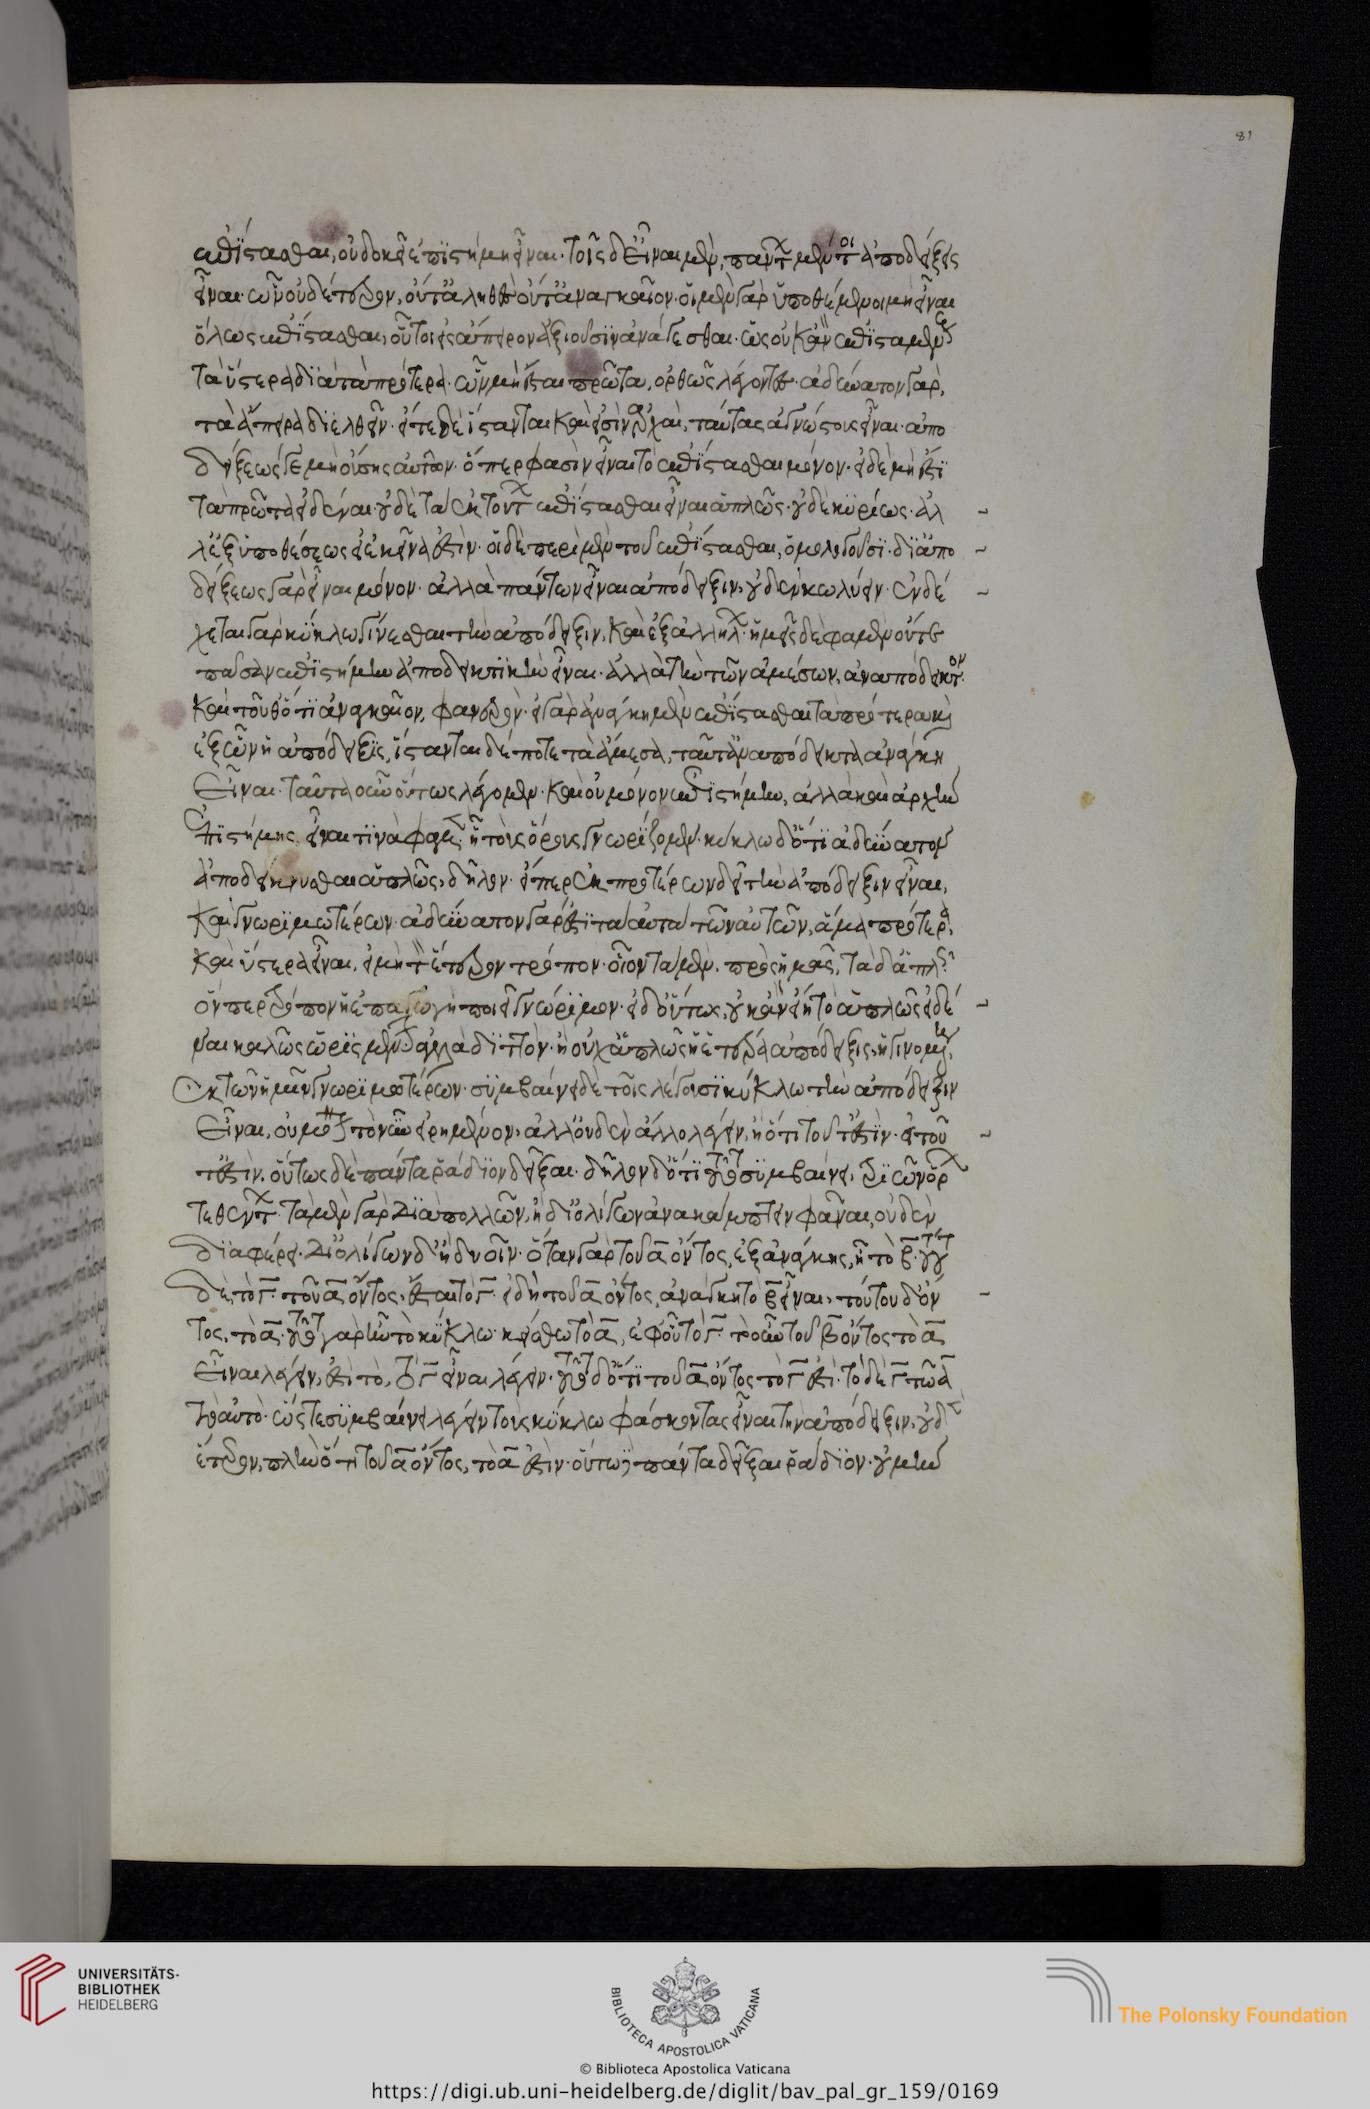 ἐπίστασθαι, οὐ δοκεῖ ἐπιστήμη εἶναι· τοῖς δ' εἶναι μὲν, πάντων μέντοι ἀποδείξεις
εἶναι· ὧν οὐδέτερον, οὔτ' ἀληθὲς οὔτ' ἀναγκαῖον· οἱ μὲν γὰρ ὑποθέμενοι μὴ εἶναι
ὅλως ἐπίστασθαι, οὗτοι εἰς ἄπειρον ἀξιοῦσιν ἀνάγεσθαι· ὡς οὐκ ἂν ἐπισταμένους
τὰ ὕστερα διὰ τὰ πρότερα· ὧν μή ἐστι πρῶτα, ὀρθῶς λέγοντες· ἀδύνατον γὰρ,
τὰ ἄπειρα διελθεῖν· εἴτε δὲ ἵστανται καὶ εἰσὶν ἀρχαὶ, ταύτας ἀγνώστους εἶναι· ἀπο
δείξεώς γε μὴ οὔσης αὐτῶν· ὅπερ φασὶν εἶναι τὸ ἐπίστασθαι μόνον· εἰ δὲ μὴ ἔστι
τὰ πρῶτα εἰδέναι· οὐδὲ τὰ ἐκ τούτων ἐπίστασθαι εἶναι ἁπλῶς· οὐδὲ κυρίως· ἀλ
λ' ἐξ ὑποθέσεως εἰ ἐκεῖνά ἐστιν· οἱ δὲ περὶ μὲν τοῦ ἐπίστασθαι, ὁμολογοῦσι· δι' ἀπο
δείξεως γὰρ εἶναι μόνον· ἀλλὰ πάντων εἶναι ἀπόδειξιν, οὐδὲν κωλύειν· ἐνδέ
χεται γὰρ κύκλω γίνεσθαι τὴν ἀπόδειξιν, καὶ ἐξ ἀλλήλων· ἡμεῖς δέ φαμεν οὔτε
πᾶσαν ἐπιστήμην ἀποδεικτικὴν εἶναι· ἀλλὰ τὴν τῶν ἀμέσων, ἀναπόδεικτον·
καὶ τοῦθ' ὅτι ἀναγκαῖον, φανερόν· εἰ γὰρ ἀνάγκη μὲν ἐπίστασθαι τὰ πρότερα καὶ
ἐξ ὧν ἡ ἀπόδειξις, ἵστανται δέ ποτε τὰ ἄμεσα, ταῦτ' ἀναπόδεικτα ἀνάγκη
εἶναι· ταῦτα οὖν οὕτως λέγομεν· καὶ οὐ μόνον ἐπιστήμην, ἀλλὰ καὶ ἀρχὴν
ἐπιστήμης εἶναι τινά φαμεν, ἧ τοὺς ὅρους γνωρίζομεν· κύκλω δ' ὅτι ἀδύνατον
ἀποδείκνυσθαι ἁπλῶς, δῆλον· εἴπερ ἐκ προτέρων δεῖ τὴν ἀπόδειξιν εἶναι,
καὶ γνωριμωτέρων· ἀδύνατον γάρ ἐστι τὰ αὐτὰ τῶν αὐτῶν, ἅμα πρότερα,
καὶ ὕστερα εἶναι, εἰ μὴ τὸν ἕτερον τρόπον· οἷον τὰ μὲν πρὸς ἡμᾶς, τὰ δ' ἁπλῶς
ὅνπερ τρόπον ἡ ἐπαγωγὴ ποιεῖ γνώριμον· εἰ δ' οὕτως, οὐκ ἂν εἴη τὸ ἁπλῶς εἰδέ
ναι καλῶς ὡρισμένον ἀλλὰ διττόν· ἢ οὐχ ἁπλῶς ἡ ἑτέρα ἀπόδειξις, ἡ γινομένη
ἐκ τῶν ἡμῖν γνωριμωτέρων· συμβαίνει δὲ τοῖς λέγουσι κύκλω τὴν ἀπόδειξιν
εἶναι, οὐ μόνον τὸ νῦν εἰρημένον, ἀλλ' οὐδὲν ἄλλο λέγειν, ἢ ὅτι τοῦτ' ἔστιν· εἰ τοῦ
τ' ἔστιν· οὕτως δὲ πάντα ῥάδιον δεῖξαι· δῆλον δ' ὅτι τοῦτο συμβαίνει, τριῶν ὅρων
τεθέντων· τὰ μὲν γὰρ διὰ πολλῶν, ἢ δι' ὀλίγων ἀνακάμπτειν φάναι, οὐδὲν
διαφέρει· δι' ὀλίγων δ' ἢ δυοῖν· ὅταν γὰρ τοῦ α ὄντος, ἐξ ἀνάγκης, ἦ τὸ β· τούτου
δὲ, τὸ γ· τοῦ α ὄντος, ἔσται τὸ γ· εἰ δὴ τοῦ α ὄντος, ἀνάγκη τὸ β εἶναι, τούτου δ' ὄν
τος, τὸ α· τοῦτο γὰρ ἦν τὸ κύκλω· κείσθω τὸ α, ἐφ' οὗ τὸ γ· τὸ οὖν τοῦ β ὄντος τὸ α
εἶναι λέγειν, ἐστὶ τὸ, τὸ γ εἶναι λέγειν· τοῦτο δ' ὅτι τοῦ α ὄντος τὸ γ ἐστί· τὸ δὲ γ τῶ α
τὸ αὐτό· ὥστε συμβαίνει λέγειν τοὺς κύκλω φάσκοντας εἶναι τὴν ἀπόδειξιν, οὐδὲν
ἕτερον, πλὴν ὅτι τοῦ α ὄντος, τὸ α ἐστίν· οὕτω πάντα δεῖξαι ῥάδιον· οὐ μὴν
81
UNIVERSITÄTS-
BIBLIOTHEK
HEIDELBERG
BIBLIOTECA APOSTOLICA VATICANA
The Polonsky Foundation
© Biblioteca Apostolica Vaticana
https://digi.ub.uni-heidelberg.de/diglit/bav_pal_gr_159/0169